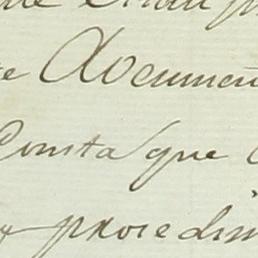 e Documen
Consta que
y procedim